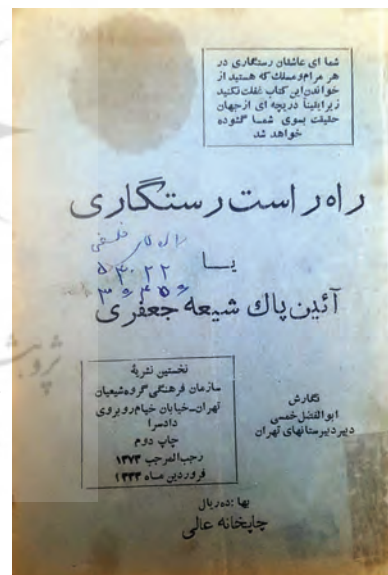 شما ای عاشقان رستگاری در
هر مرام و مسلک که هستید از
خواندن این کتاب غفلت نکنید
زیرا یقیناً دریچه ای از جهان
حقیقت بسوی شما گشوده
خواهد شد
راه راست رستگاری
یا
آئین پاك شیعه جعفری
نخستین نشریهٔ
سازمان فرهنگی گروه شیعیان
تهران_خیابان خیام روبروی
دادسرا
چاپ دوم
رجب المرجب ۱۳۷۳
فروردین ماه ۱۳۳۳
نگارش
ابوالفضل خمسی
دبیر دبیرستانهای تهران
بها : ده ریال
چاپخانه عالی